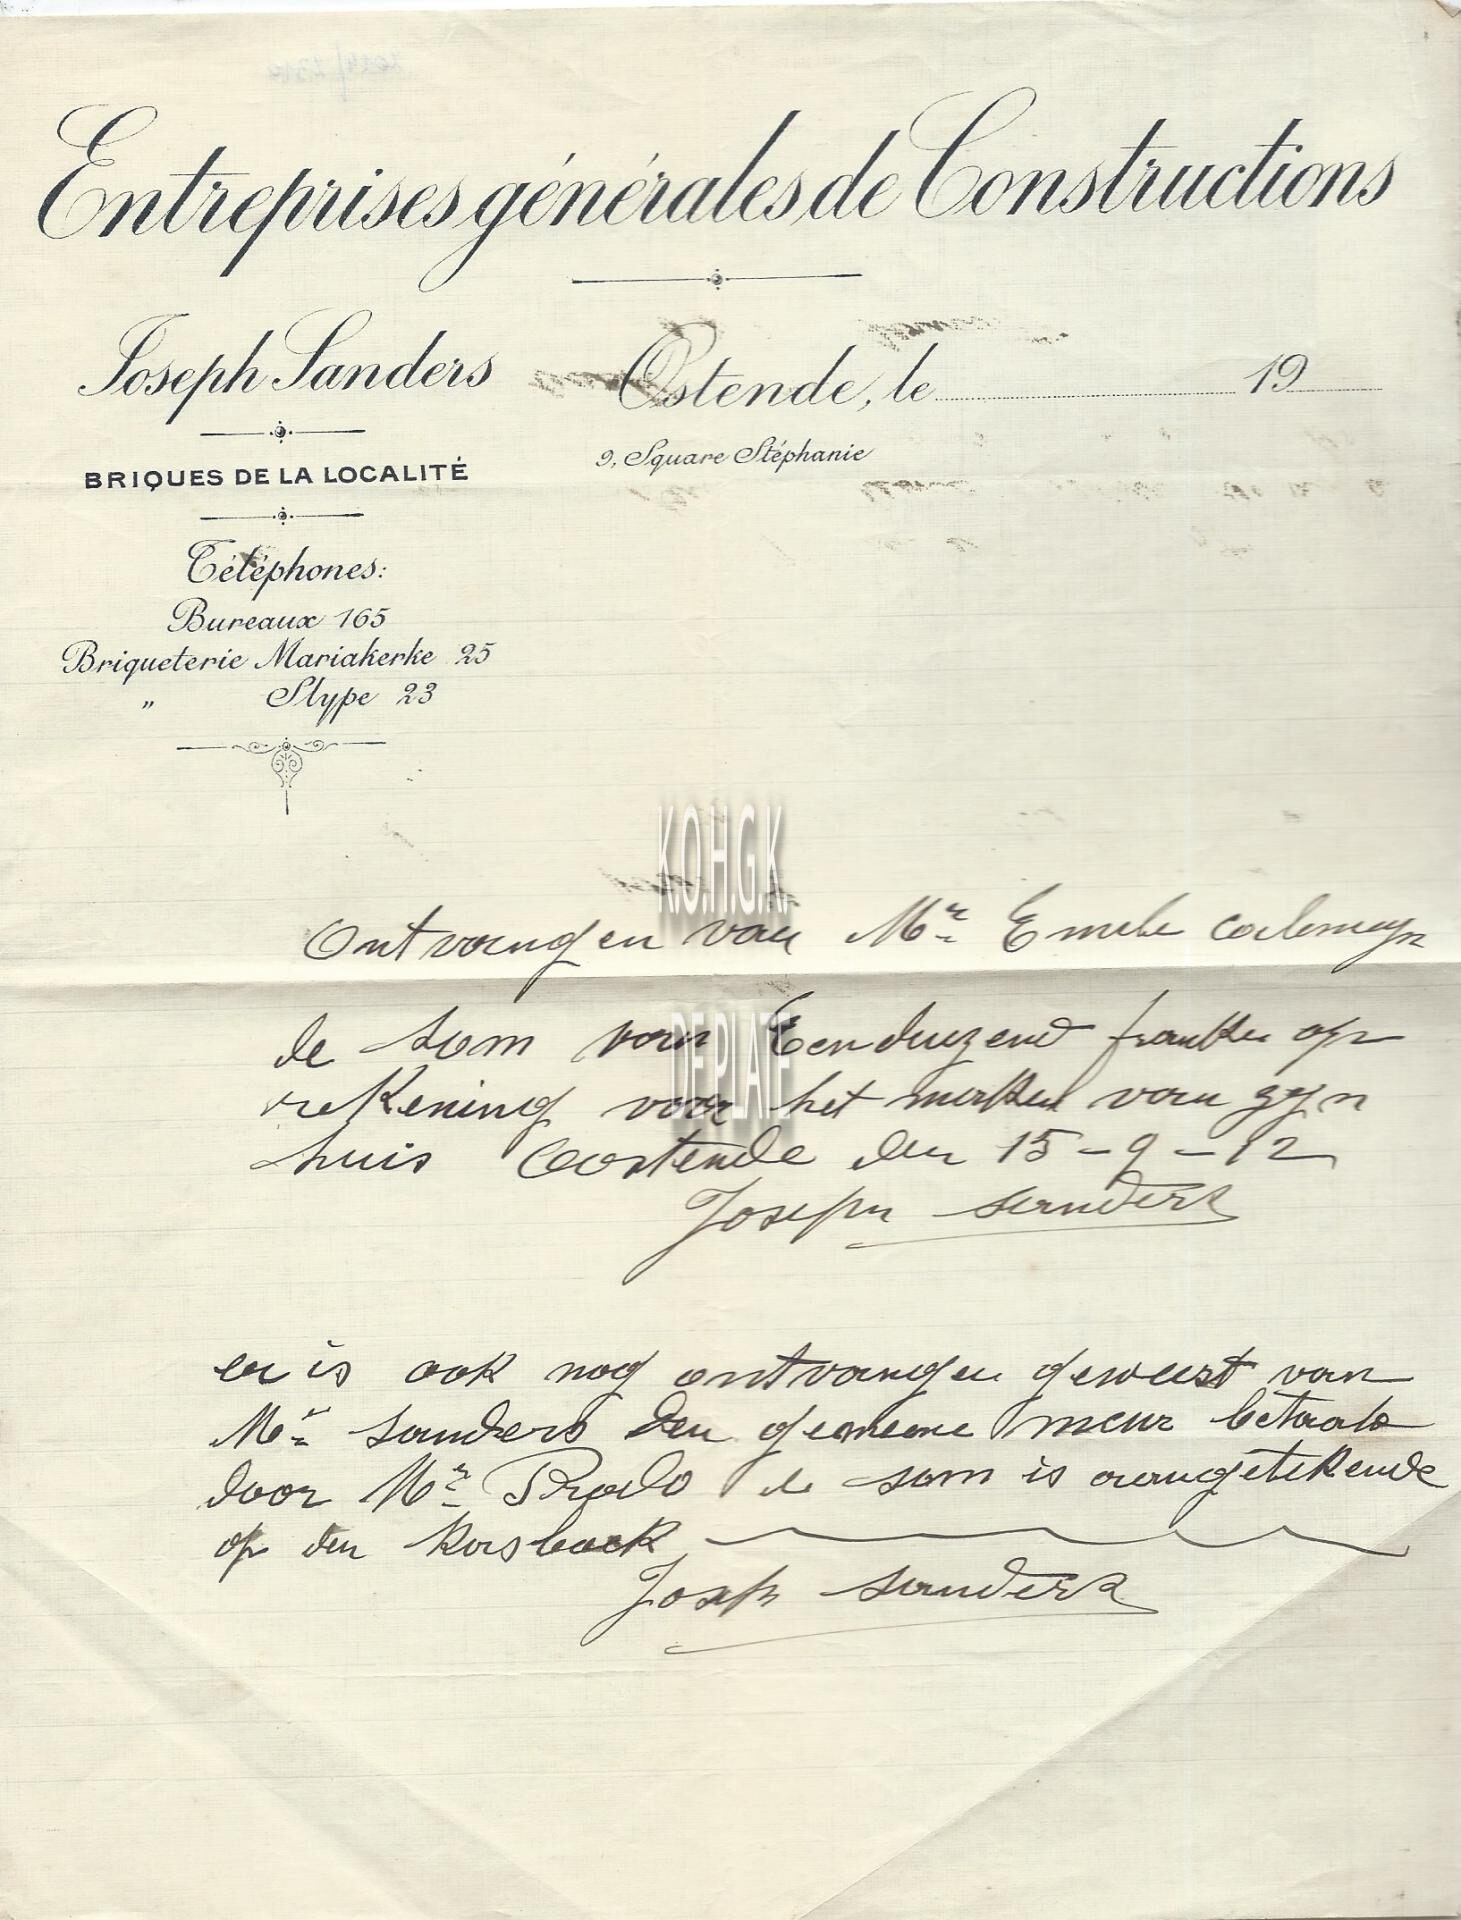 Entreprises générales de Constructions
Joseph Sanders
Ostende, le 19
9, Square Stéphanie
BRIQUES DE LA LOCALITÉ
Téléphones:
Bureaux 165
Briqueterie Mariakerke 25
„ Slype 23
K.O.H.G.K.
DE PLATE
Ontvangen van Mr Emile
de som van Eenduizend franken op
rekening voor het maken van zyn
huis Oostende den 15-9-12
Joseph Sanders
er is ook nog ontvangen geweest van
Mr Sanders den gemeene meur betaald
door Mr de som is aangetekende
op den
Joseph Sanders